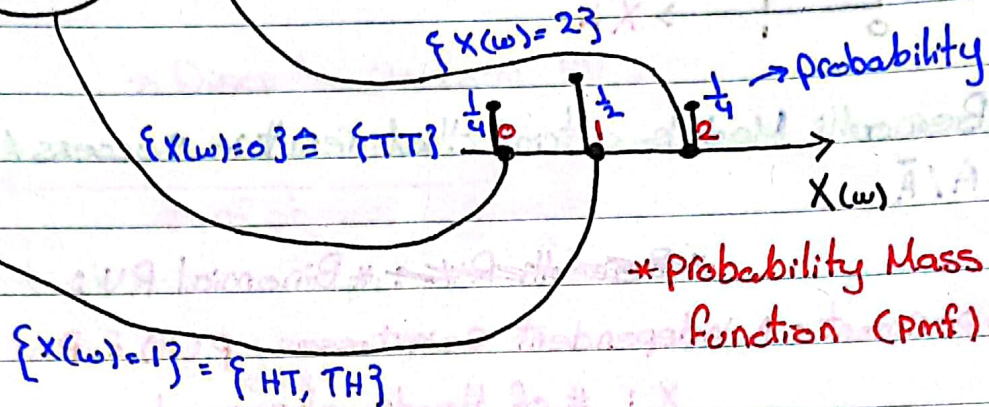 {X(ω)=2}
1/4 1/2 1/4 → probability
{X(ω)=0} ≙ {TT} 0 1 2
X(ω)
* probability Mass
function (pmf)
{X(ω)=1} = {HT, TH}